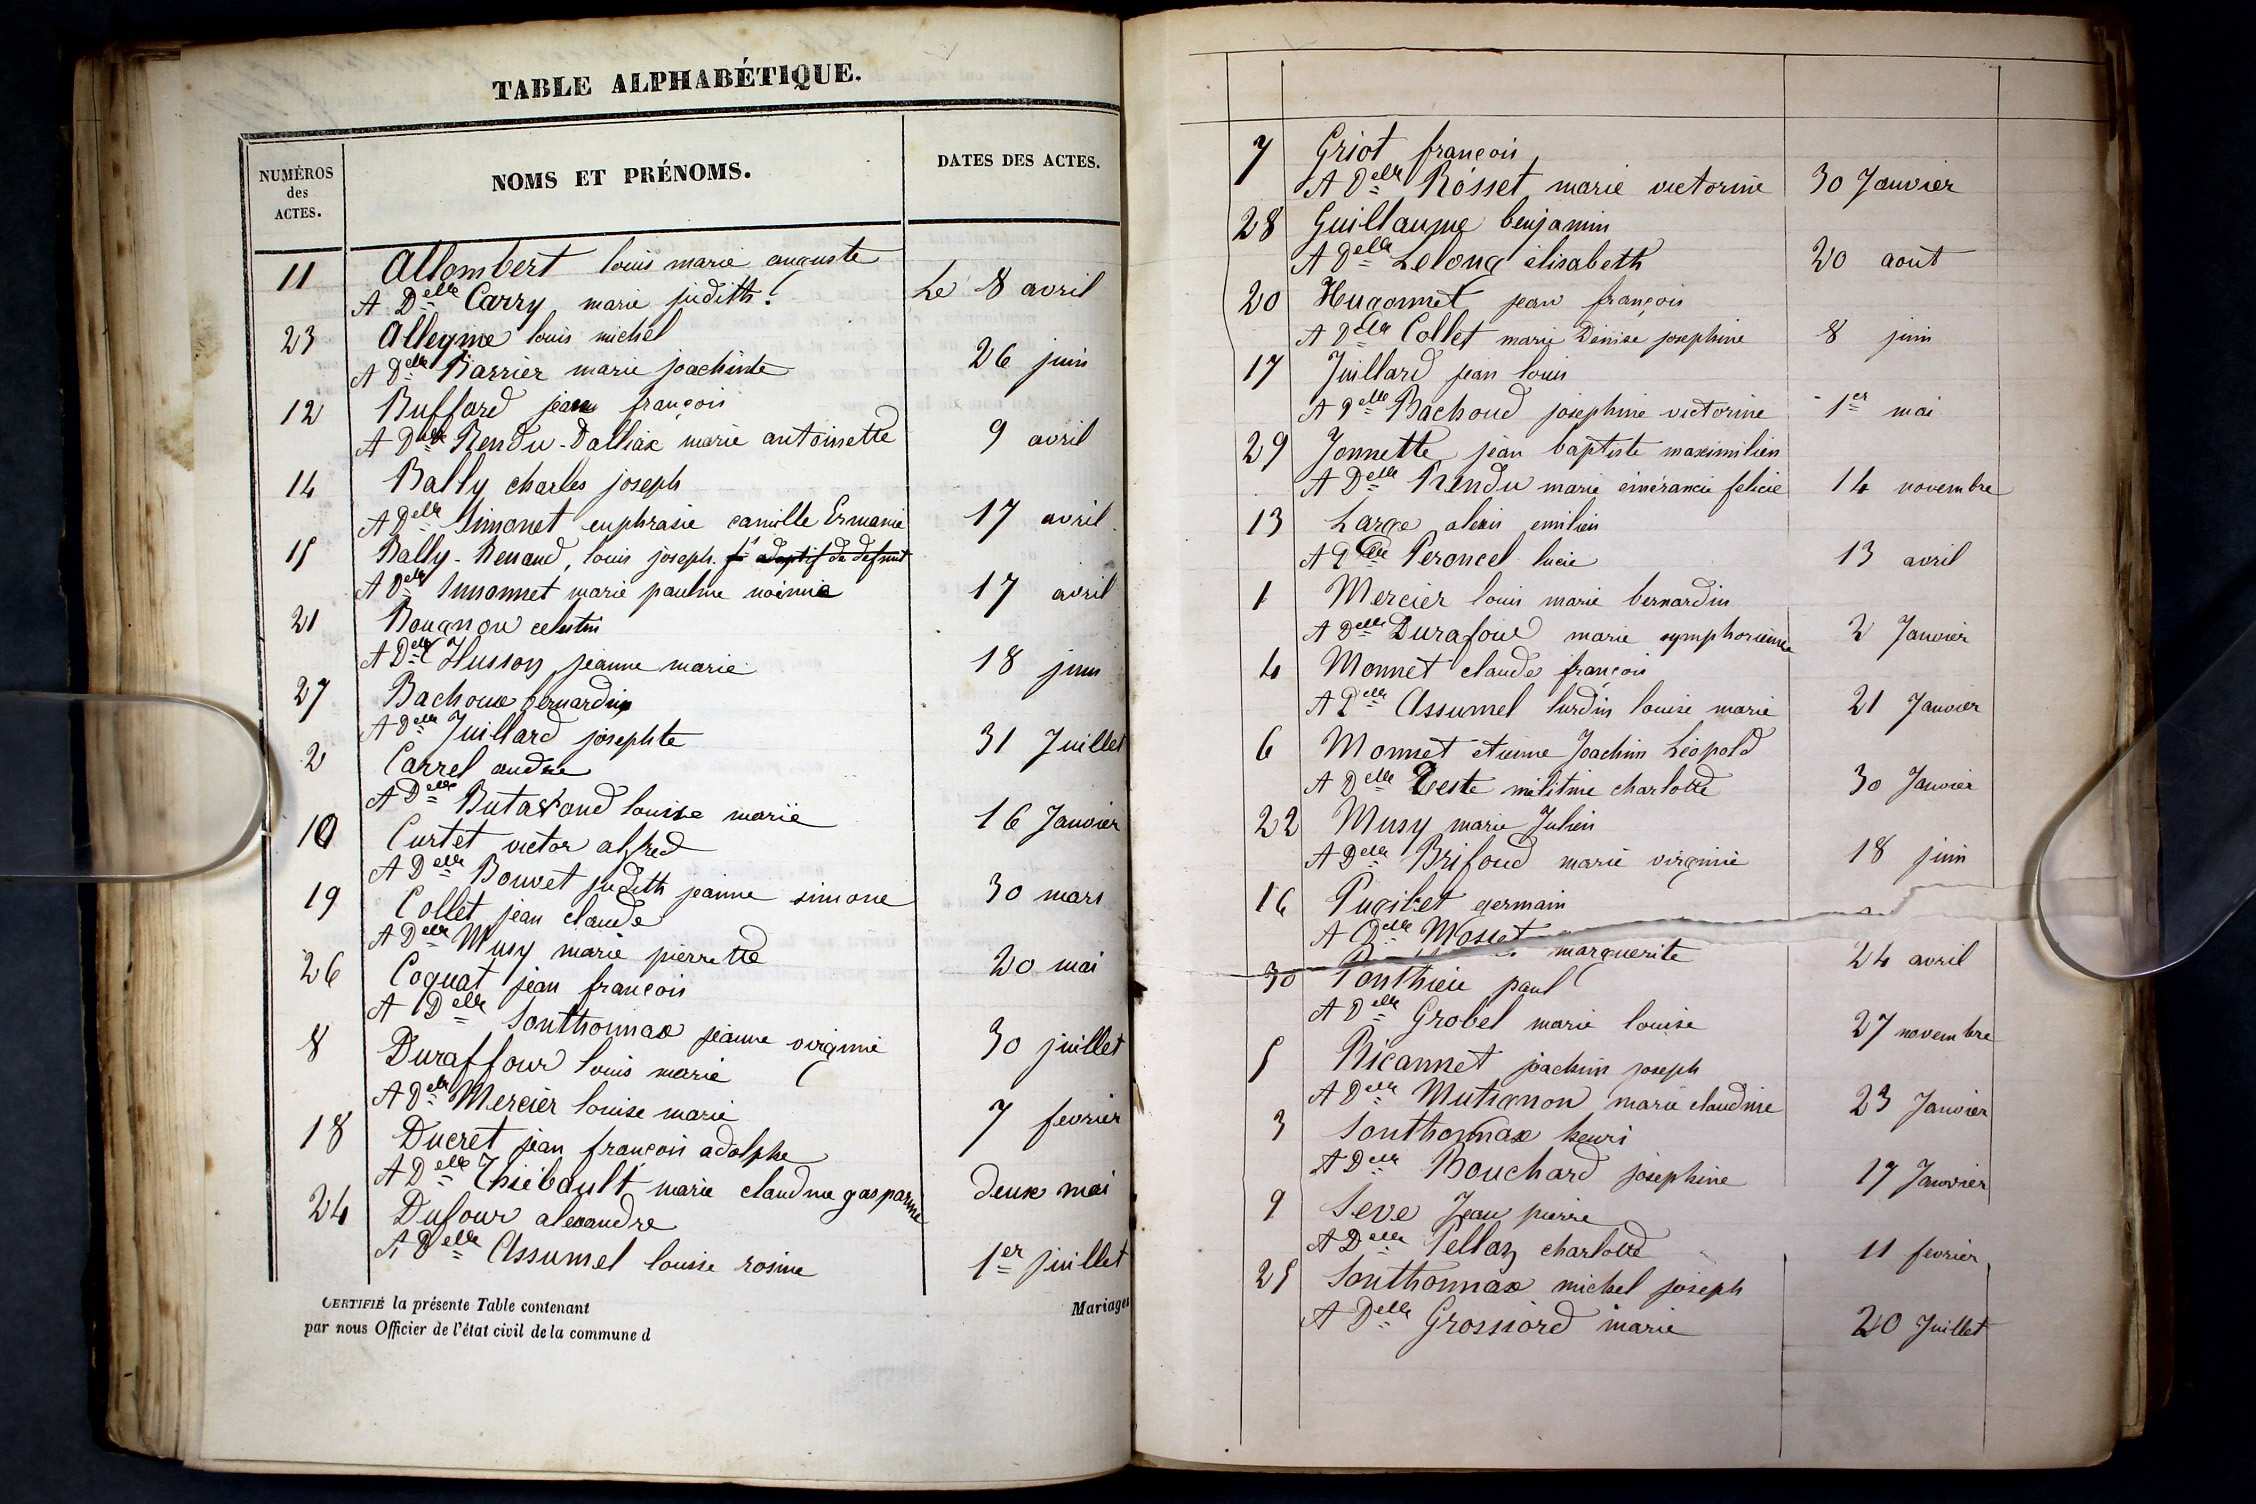 TABLE ALPHABÉTIQUE.
NUMÉROS des ACTES.
NOMS ET PRÉNOMS.
DATES DES ACTES.
11 Allombert louis marie auguste
A Delle Carry marie judith Le 8 avril
23 Alleyme louis michel
A Delle Barrier marie joachinte 26 juin
12 Buffard jean françois
A Delle Rendu-Dalliax marie antoinette 9 avril
14 Bally charles joseph
A Delle Simonet euphrasie camille Ermanie 17 avril
15 Bally-Renaud, louis joseph. fs adoptif de defunt
A Delle marie pauline noémie 17 avril
21 Bougnon celestin
A Delle Husson jeanne marie 18 juin
27 Bachoux bernardin
A Delle Juillard josephte 31 Juillet
2 Carrel andre
A Delle Butavand louise marie 16 Janvier
10 Curtet victor alfred
A Delle Bouvet judith jeanne simone 30 mars
19 Collet jean claude
A Delle Musy marie pierrette 20 mai
26 Coquat jean françois
A Delle Sonthonnax jeanne virginie 30 juillet
8 Duraffour louis marie
A Delle Mercier louise marie 7 fevrier
18 Ducret jean françois adolphe
A Delle Thiébault marie claudine gasparine deux mai
24 Dufour alexandre
A Delle Assumel louise rosine 1er juillet
CERTIFIÉ la présente Table contenant Mariages
par nous Officier de l'état civil de la commune d
7 Griot françois
A Delle Rosset marie victorine 30 Janvier
28 Guillaume benjamin
A Delle Lelong élisabeth 20 aout
20 Hugonnet jean françois
A Delle Collet marie Denise josephine 8 juin
17 Juillard jean louis
A Delle Bachoud josephine victorine 1er mai
29 Jonnette jean baptiste maximilien
A Delle Rendu marie émérancie felicie 14 novembre
13 Large alexis emilien
A Delle Peroncel lucie 13 avril
1 Mercier louis marie bernardin
A Delle Durafour marie symphorienne 2 Janvier
4 Monnet claude françois
A Delle Assumel lurdin louise marie 21 Janvier
6 Monnet etienne Joachim Léopold
A Delle Teste militine charlotte 30 Janvier
22 Musy marie Julien
A Delle Brifoud marie virginie 18 juin
16 Pugibet germain
A Delle Mosset
marguerite 24 avril
30 Ponthieu paul
A Delle Grobel marie louise 27 novembre
5 Ricannet joachim joseph
A Delle Mutignon marie claudine 23 Janvier
3 Sonthonnax henri
A Delle Bouchard joséphine 17 Janvier
9 Seve Jean pierre
A Delle Pellaz charlotte 11 fevrier
25 Sonthonnax michel joseph
A Delle Grossiord marie 20 Juillet